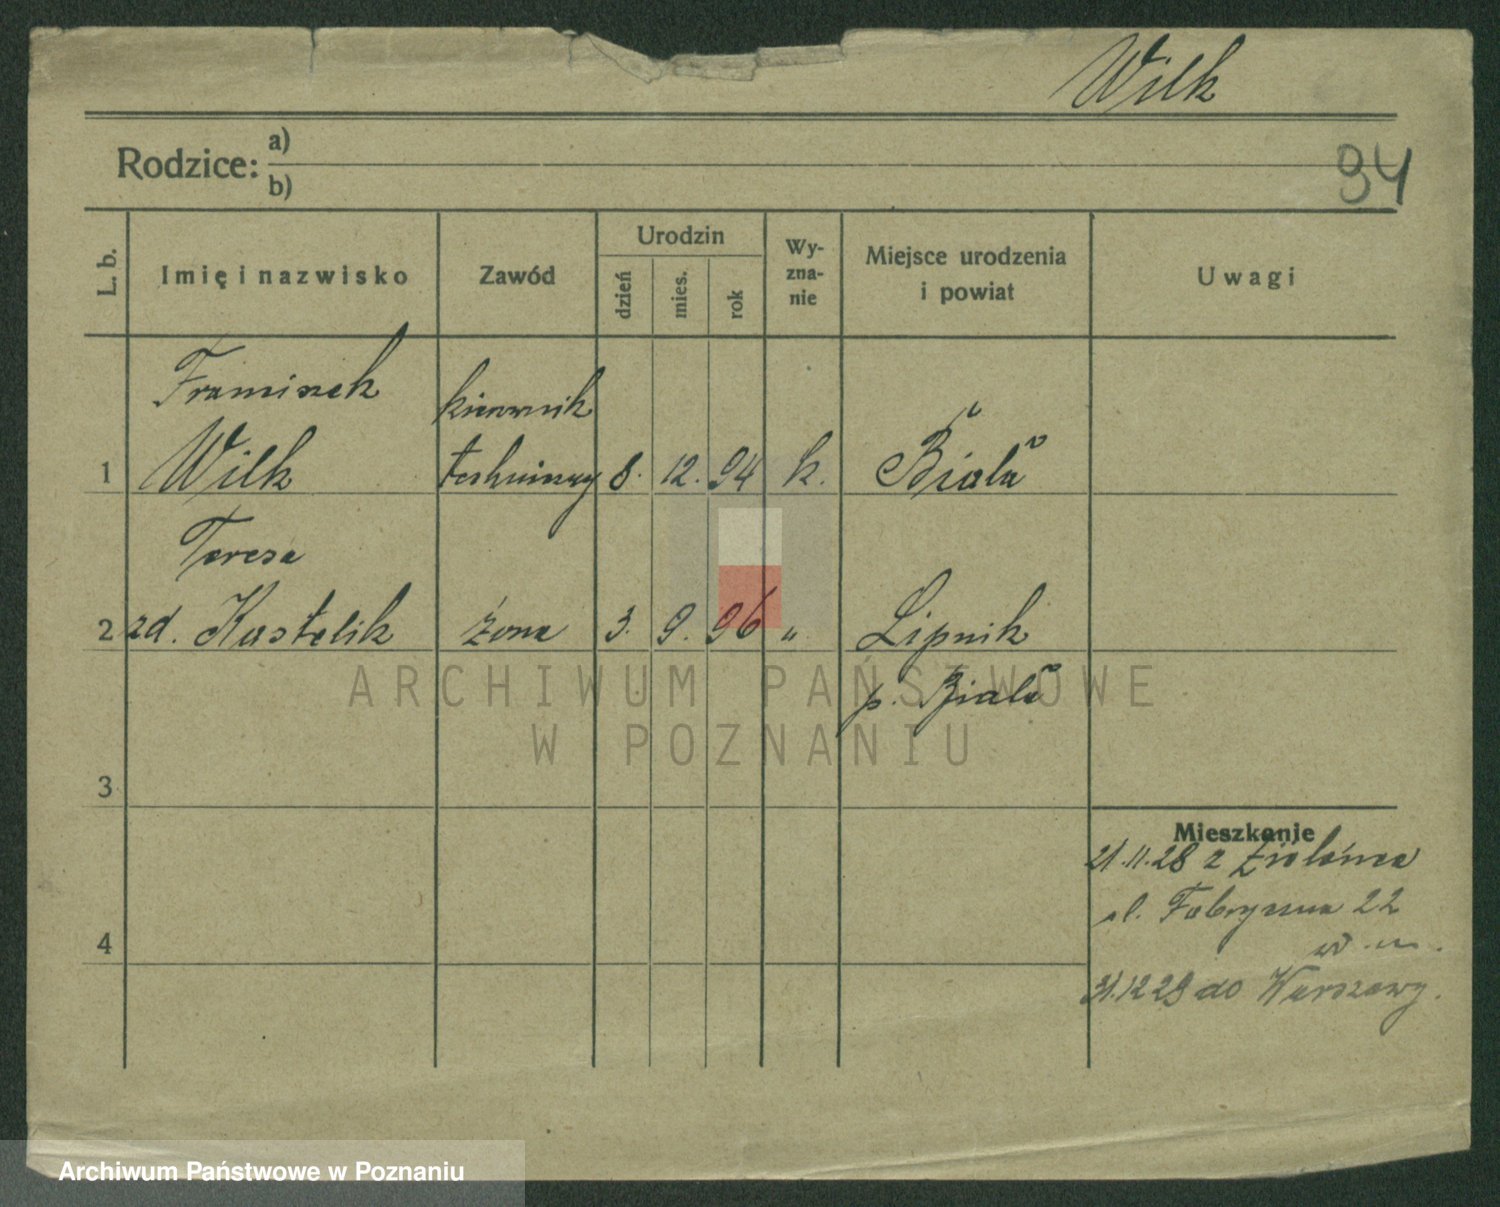 Wilk
94
Rodzice: a)
b)
L. b.
Imię i nazwisko
Zawód
Urodzin
dzień
mies.
rok
Wy-
zna-
nie
Miejsce urodzenia
i powiat
Uwagi
Franciszek
kierownik
1 Wilk techniczny 8. 12. 94 k. Biała
Teresa
2 zd. Kastelik żona 3. 9. 96 " Lipnik
p. Biała
3
Mieszkanie
21.11.28 z
ul. Fabryczna 22
4
w m.
31.12 29 do Warszawy.
ARCHIWUM PAŃSTWOWE
W POZNANIU
Archiwum Państwowe w Poznaniu